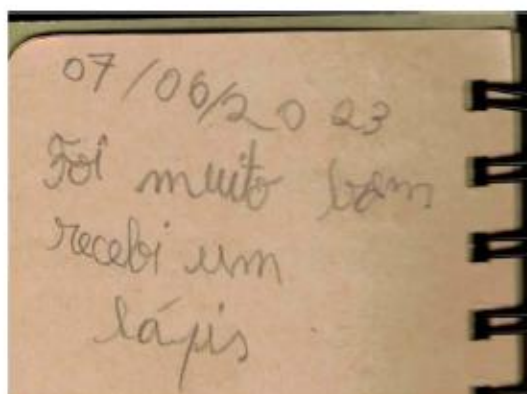 07/06/2023
Foi muito bom
recebi um
lápis